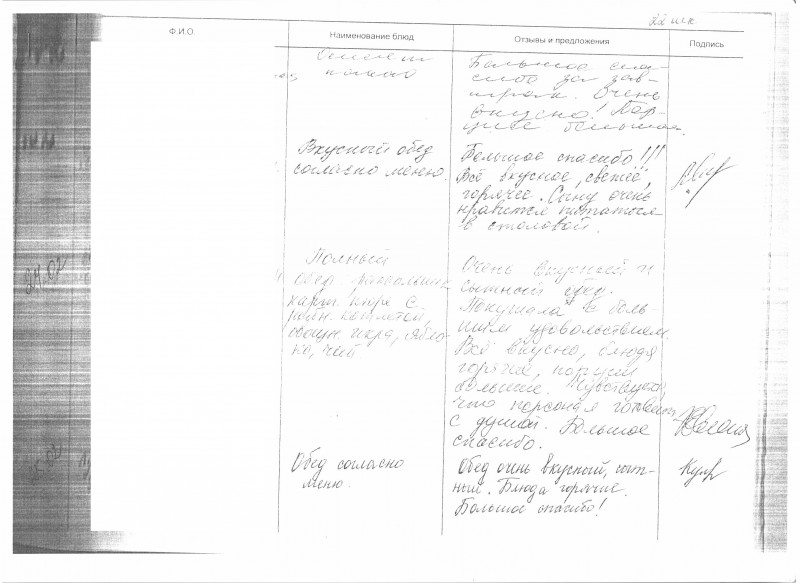 22 шк
Ф.И.О.
Наименование блюд
Отзывы и предложения
Подпись
Омлет
какао
Большое спа-
сибо за зав-
трак. Очень
вкусно! Пор-
ции большие.
Вкусный обед
согласно меню.
Большое спасибо!!!
Всё вкусное, свежее,
горячее. Сыну очень
нравится питаться
в столовой.
24.02
Полный
обед
карт. пюре с
котлетой,
овощн. икра, ябло-
ко, чай
Очень вкусный и
сытный обед.
Покушала с боль-
шим удовольствием.
Всё вкусно, блюда
горячие, порции
большие. Чувствуется,
что персонал готовит
с душой. Большое
спасибо.
Обед согласно
меню.
Обед очень вкусный, сыт-
ный. Блюда горячие.
Большое спасибо!